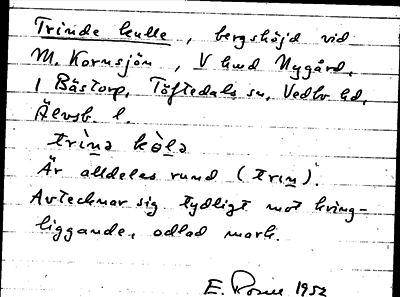 Trinde kulle, bergshöjd vid
M. Kornsjön, V hmd Nygård,
1 Bästorp, Töftedals sn, Vedbo hd,
Älvsb. l.
trìnə kòlə
Är alldeles rund (trin).
Avtecknar sig tydligt mot kring-
liggande, odlad mark.
E. 1952